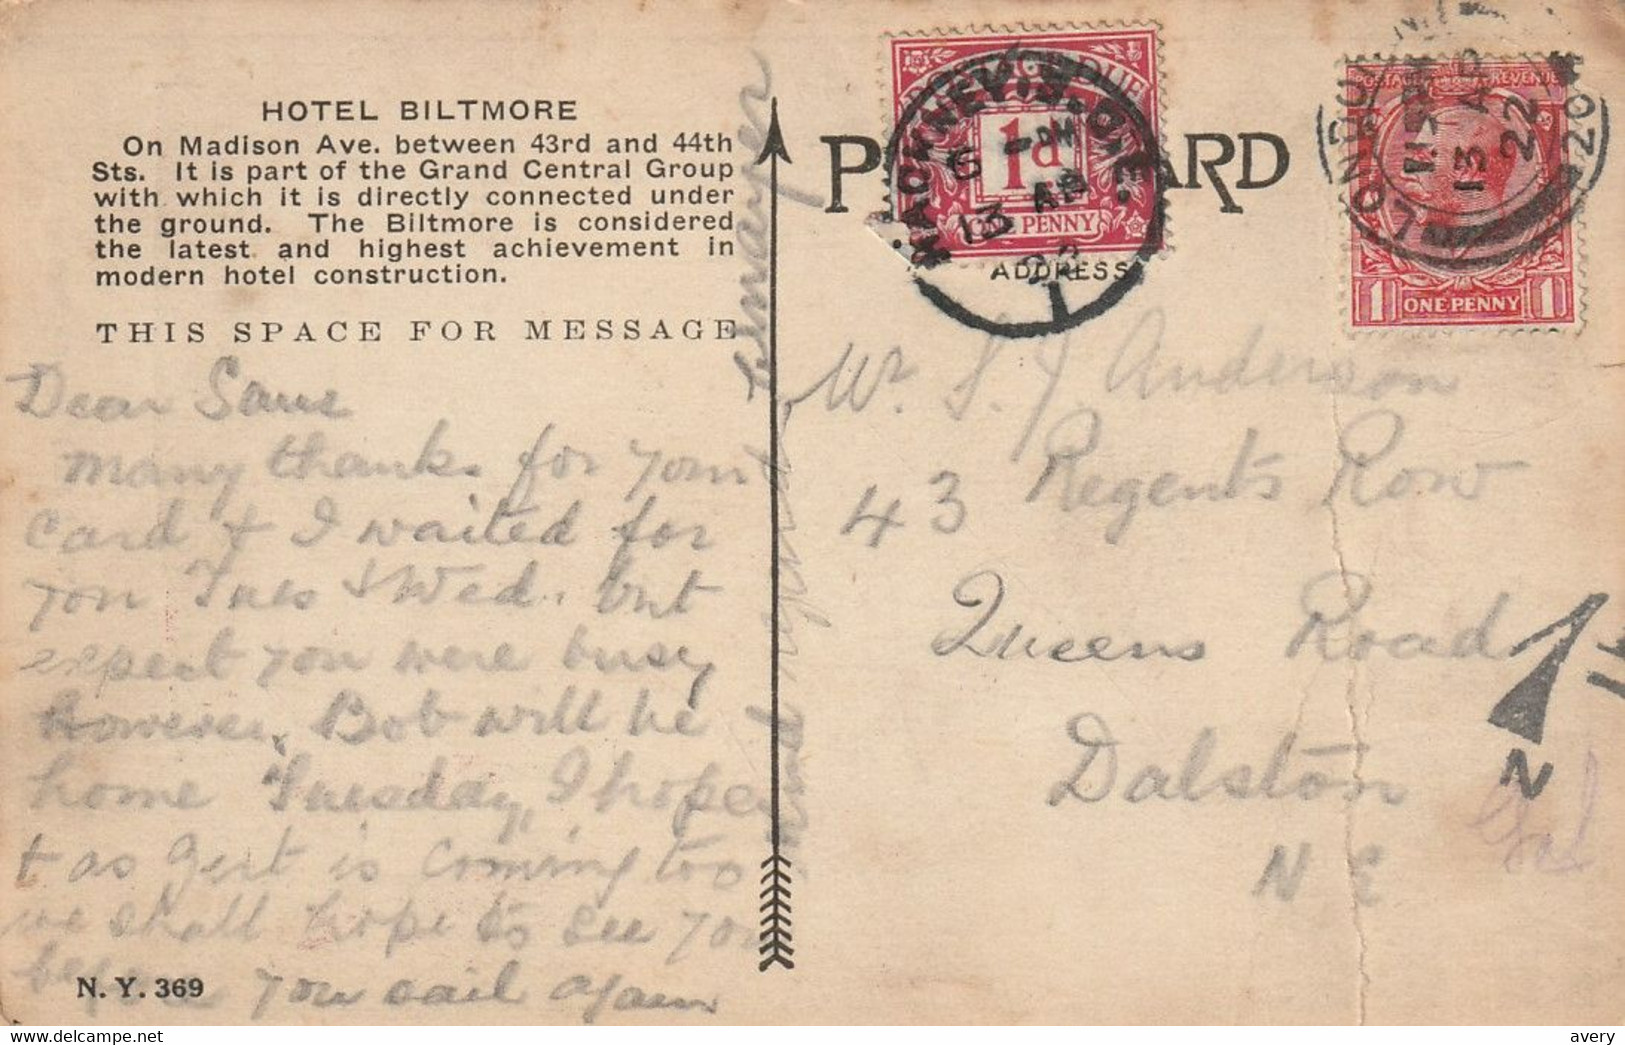 HOTEL BILTMORE
On Madison Ave. between 43rd and 44th
Sts. It is part of the Grand Central Group
with which it is directly connected under
the ground. The Biltmore is considered
the latest and highest achievement in
modern hotel construction.
THIS SPACE FOR MESSAGE
Dear Same
Many thanks for your
card & I waited for
you Tues & Wed. but
expect you were busy
However, Bob will be
home Tuesday, I hope
& as Gert is coming too
we shall hope to see you
before you sail again
N. Y. 369
POSTAGE DUE
1d
ONE PENNY
HACKNEY.B.O.E.
13 AP
22
ADDRESS
POSTAGE REVENUE
1 ONE PENNY 1
LONDON
13 AP
22
Mr. S. J. Anderson
43 Regents Row
Queens Road
Dalston
N E
avery